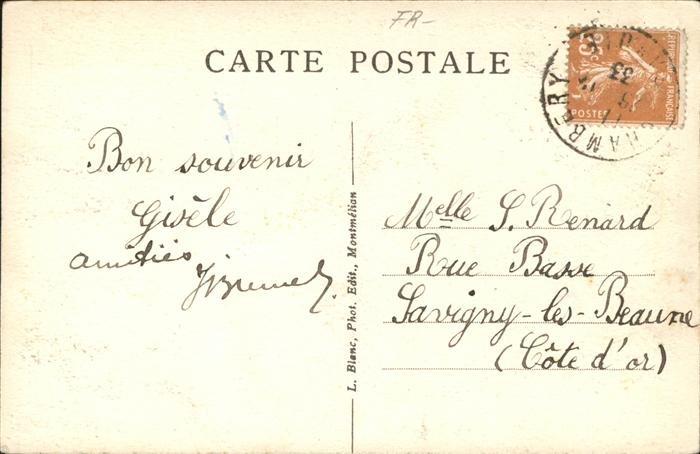 FR-
CARTE POSTALE
Bon souvenir
Gisèle
amitiés
L. Blanc, Phot. Edit., Montmélian
Melle S. Renard
Rue Basse
Savigny-les-Beaune
(Côte d'or)
25c
POSTES
FRANÇAISE
CHAMBERY
33